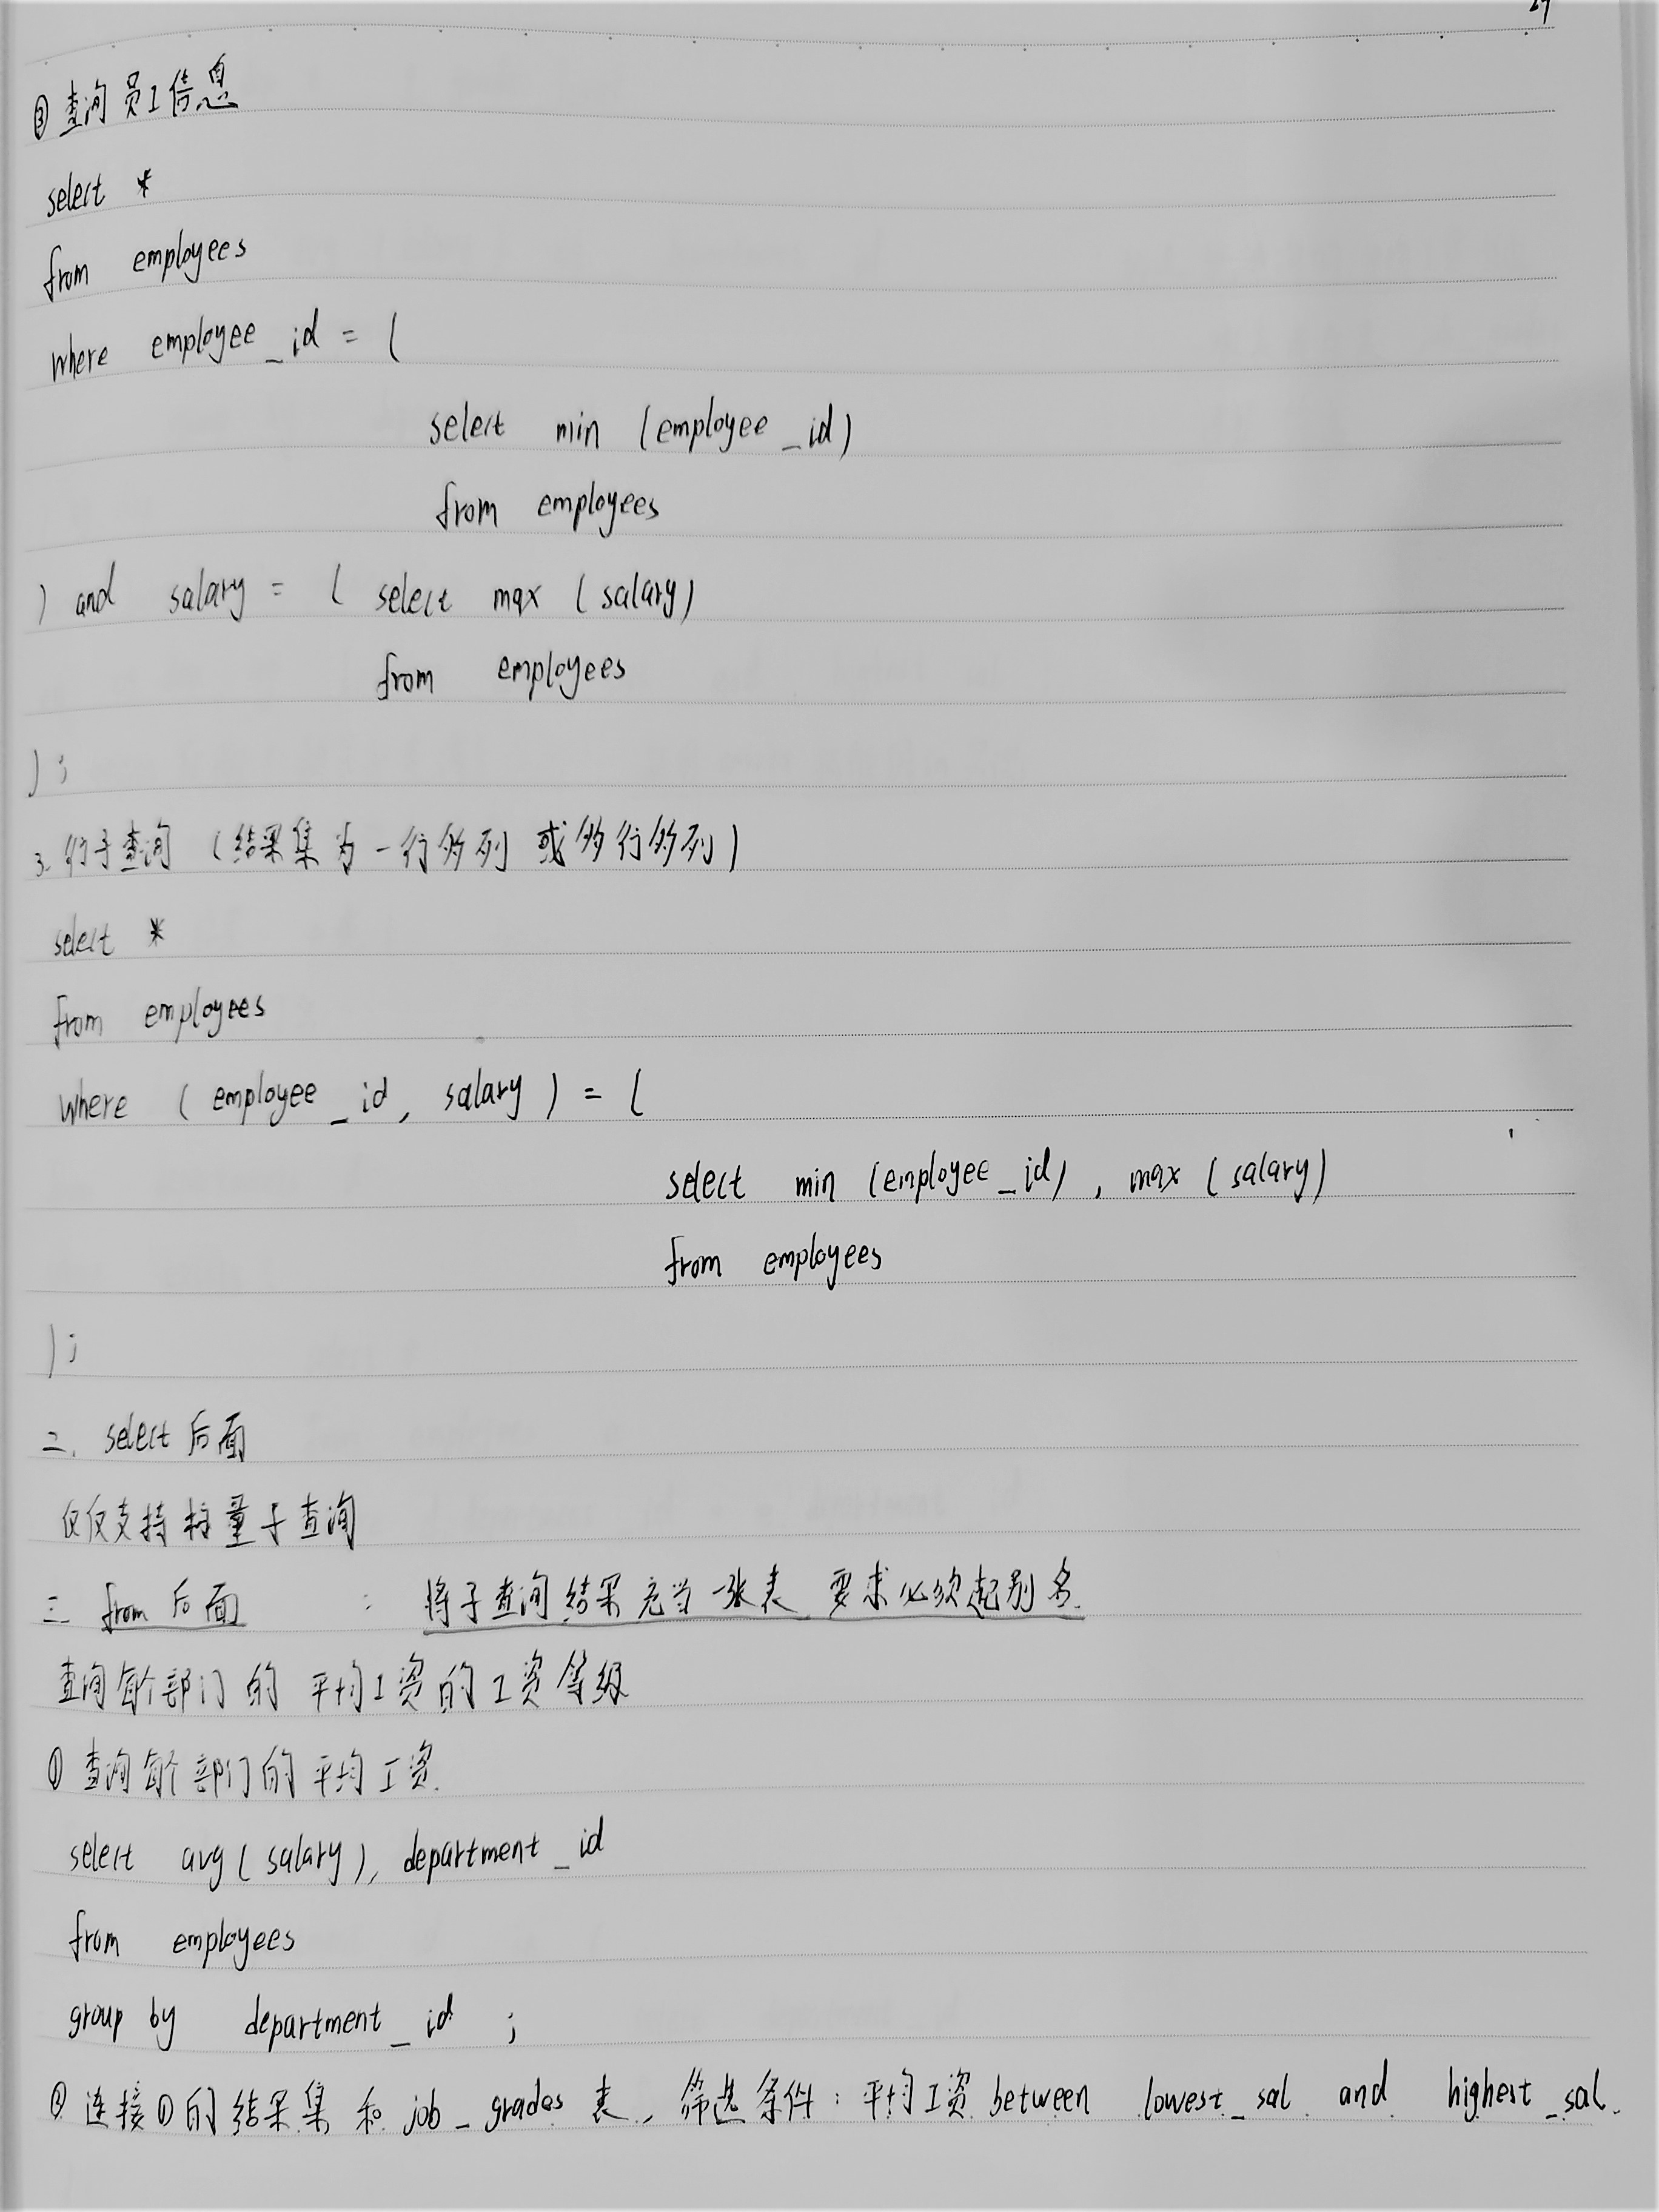 ③查询员工信息
select *
from employees
where employee_id = (
select min (employee_id)
from employees
) and salary = ( select max (salary)
from employees
);
3. 行子查询 (结果集为一行多列 或多行多列)
select *
from employees
where (employee_id, salary) = (
select min (employee_id), max (salary)
from employees
);
二. select后面
仅仅支持标量子查询
三. from后面 : 将子查询结果充当一张表, 要求必须起别名.
查询每个部门的平均工资的工资等级
① 查询每个部门的平均工资.
select avg(salary), department_id
from employees
group by department_id ;
② 连接①的结果集和 job_grades 表, 筛选条件: 平均工资 between lowest_sal and highest_sal.